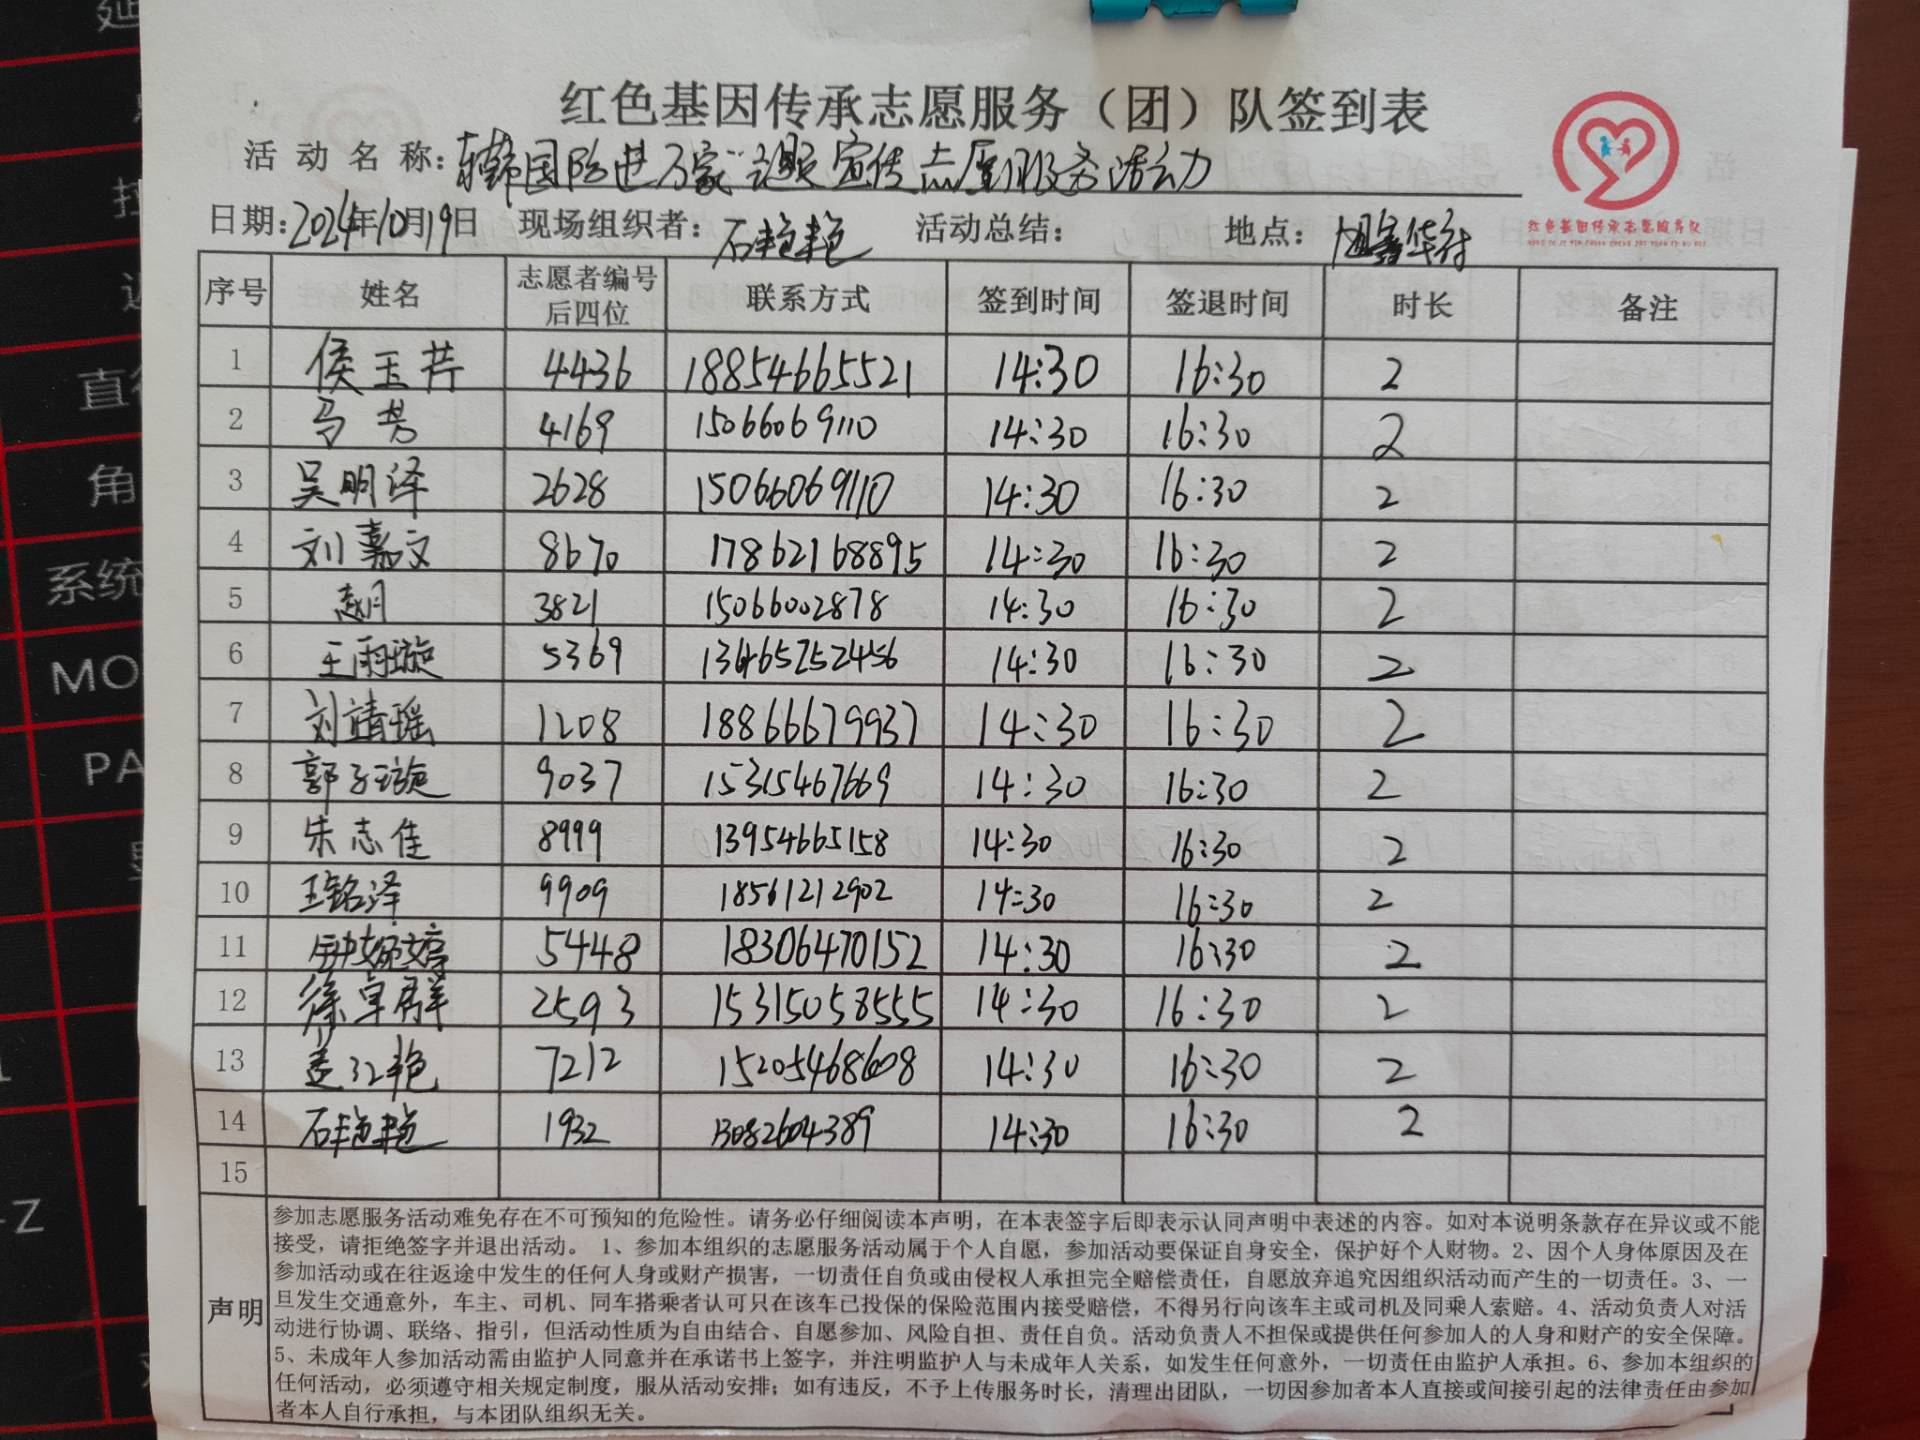 红色基因传承志愿服务（团）队签到表
活动名称：国防进万家"主题宣传志愿服务活动
日期：2024年10月19日 现场组织者：石艳艳 活动总结： 地点：旭鑫华府
红色基因传承志愿服务队
序号 姓名 志愿者编号后四位 联系方式 签到时间 签退时间 时长 备注
1 侯玉芹 4436 18854665521 14:30 16:30 2
2 马芳 4169 15066069110 14:30 16:30 2
3 吴明泽 2628 15066069110 14:30 16:30 2
4 刘嘉文 8670 17862168895 14:30 16:30 2
5 赵月 3821 15066002878 14:30 16:30 2
6 王雨璇 5369 13465252456 14:30 16:30 2
7 刘靖瑶 1208 18866679937 14:30 16:30 2
8 郭子璇 9037 15315467669 14:30 16:30 2
9 朱志佳 8999 13954665158 14:30 16:30 2
10 王铭泽 9909 18561212902 14:30 16:30 2
11 钟婷 5448 18306470152 14:30 16:30 2
12 徐卓群 2593 15315058555 14:30 16:30 2
13 红艳 7212 15205468608 14:30 16:30 2
14 石艳艳 1932 13082604389 14:30 16:30 2
15
声明
参加志愿服务活动难免存在不可预知的危险性。请务必仔细阅读本声明，在本表签字后即表示认同声明中表述的内容。如对本说明条款存在异议或不能
接受，请拒绝签字并退出活动。 1、参加本组织的志愿服务活动属于个人自愿，参加活动要保证自身安全，保护好个人财物。2、因个人身体原因及在
参加活动或在往返途中发生的任何人身或财产损害，一切责任自负或由侵权人承担完全赔偿责任，自愿放弃追究因组织活动而产生的一切责任。3、一
旦发生交通意外，车主、司机、同车搭乘者认可只在该车已投保的保险范围内接受赔偿，不得另行向该车主或司机及同乘人索赔。4、活动负责人对活
动进行协调、联络、指引，但活动性质为自由结合、自愿参加、风险自担、责任自负。活动负责人不担保或提供任何参加人的人身和财产的安全保障。
5、未成年人参加活动需由监护人同意并在承诺书上签字，并注明监护人与未成年人关系，如发生任何意外，一切责任由监护人承担。6、参加本组织的
任何活动，必须遵守相关规定制度，服从活动安排；如有违反，不予上传服务时长，清理出团队，一切因参加者本人直接或间接引起的法律责任由参加
者本人自行承担，与本团队组织无关。
直径
角
系统
MO
PA
-Z